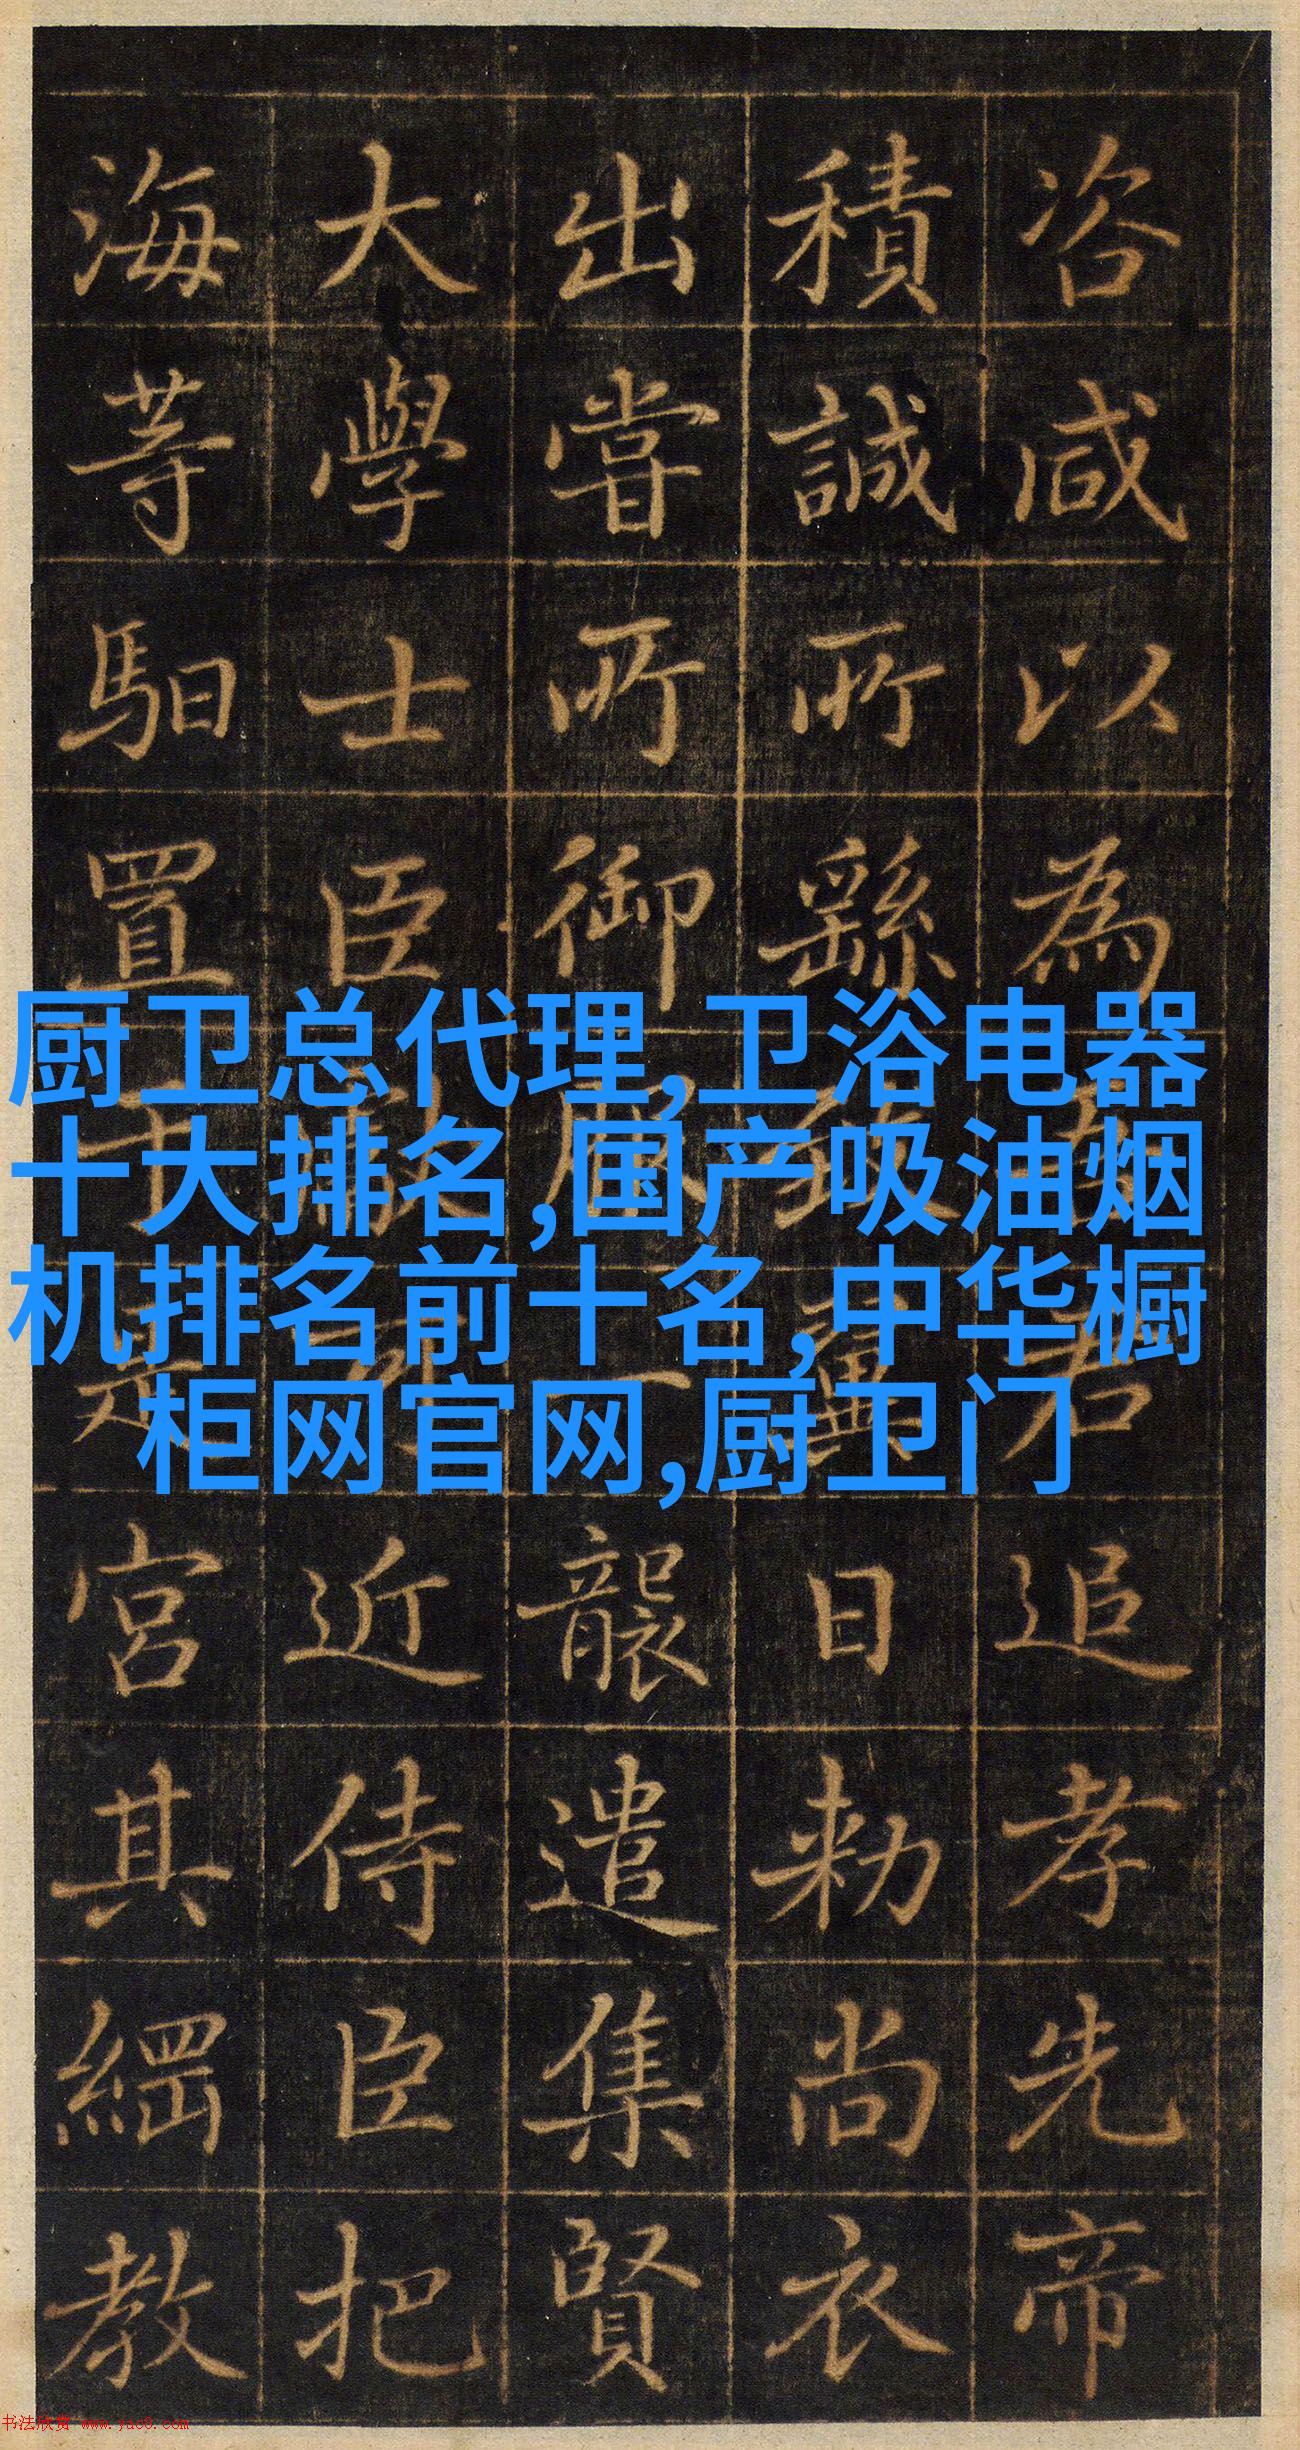 咨咸以為
追孝先帝
積誠所繇
日勑尚衣
出嘗所御
襲遣集賢
大學士臣
近侍臣把
海等馹置
宮其綱教
厨卫总代理,卫浴电器
十大排名,国产吸油烟
机排名前十名,中华橱
柜网官网,厨卫门
书法欣赏 www.yac8.com